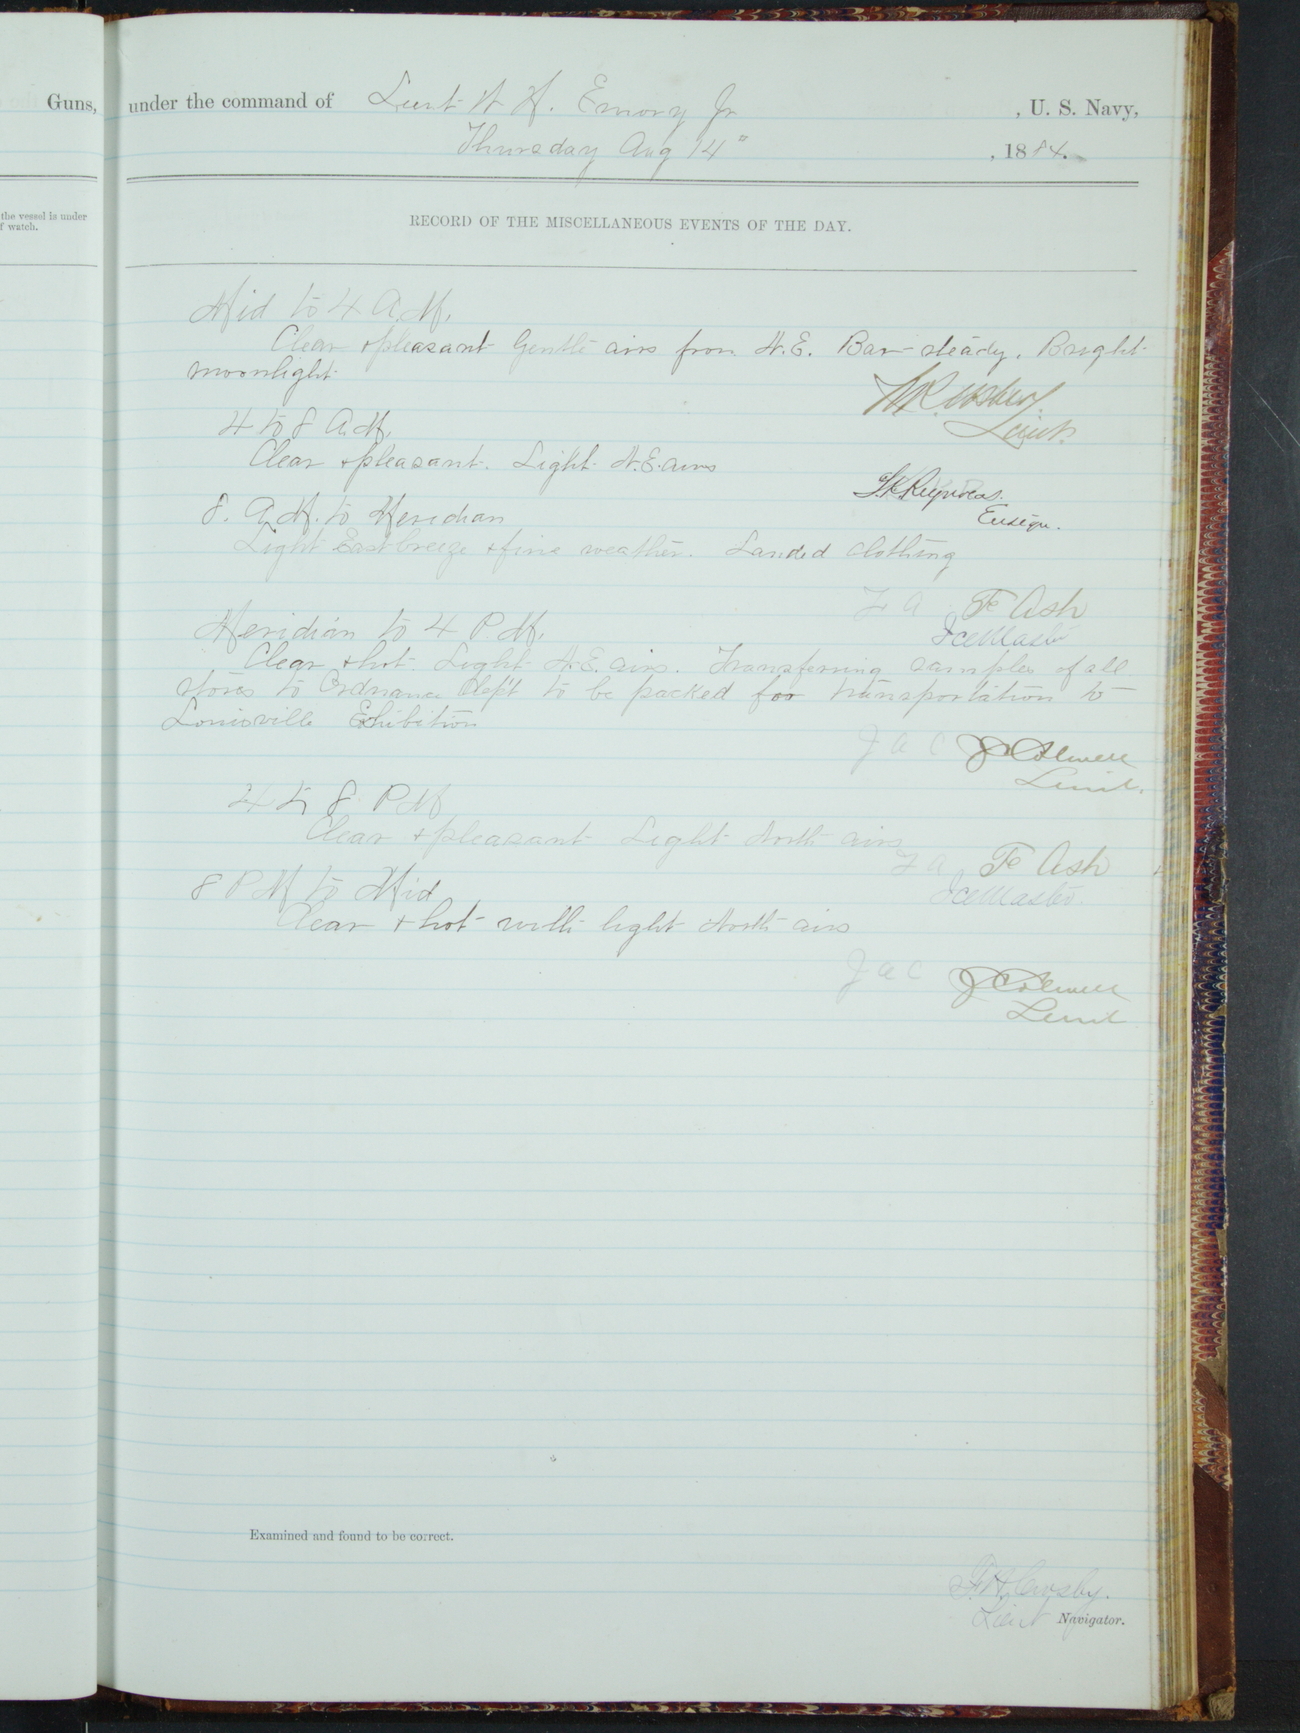 Guns, under the command of Lieut W H. Emory Jr , U. S. Navy,
Thursday Aug 14" , 1884.
the vessel is under
f watch.
RECORD OF THE MISCELLANEOUS EVENTS OF THE DAY.
Mid to 4 A.M.
Clear & pleasant Gentle airs from N.E. Bar steady. Bright
moonlight
Lieut.
4 to 8 A.M.
Clear & pleasant. Light N.E. airs
Reynolds.
Ensign.
8. A.M. to Meridian
Light East breeze & fine weather. Landed clothing
F A Ash
Ice Master
Meridian to 4 P.M.
Clear & hot Light N.E. airs. Transferring samples of all
stores to Ordnance Dep't to be packed for transportation to
Louisville Exhibition
J a C J C Colwell
Lieut.
4 to 8 P.M
Clear & pleasant Light North airs
F A Ash
Ice Master
8 P M to Mid
Clear & hot with light North airs
J a C J C Colwell
Lieut
Examined and found to be correct.
F. H. Crosby.
Lieut Navigator.